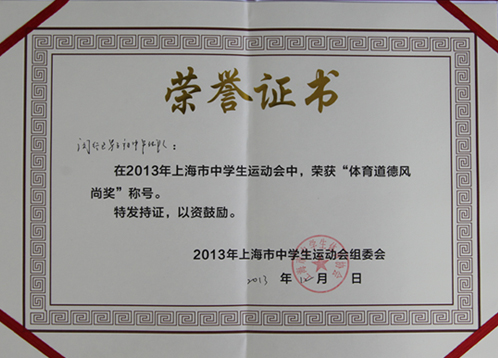 荣誉证书
在2013年上海市中学生运动会中，荣获“体育道德风
尚奖”称号。
特发持证，以资鼓励。
2013年上海市中学生运动会组委会
2013 年 12 月 日